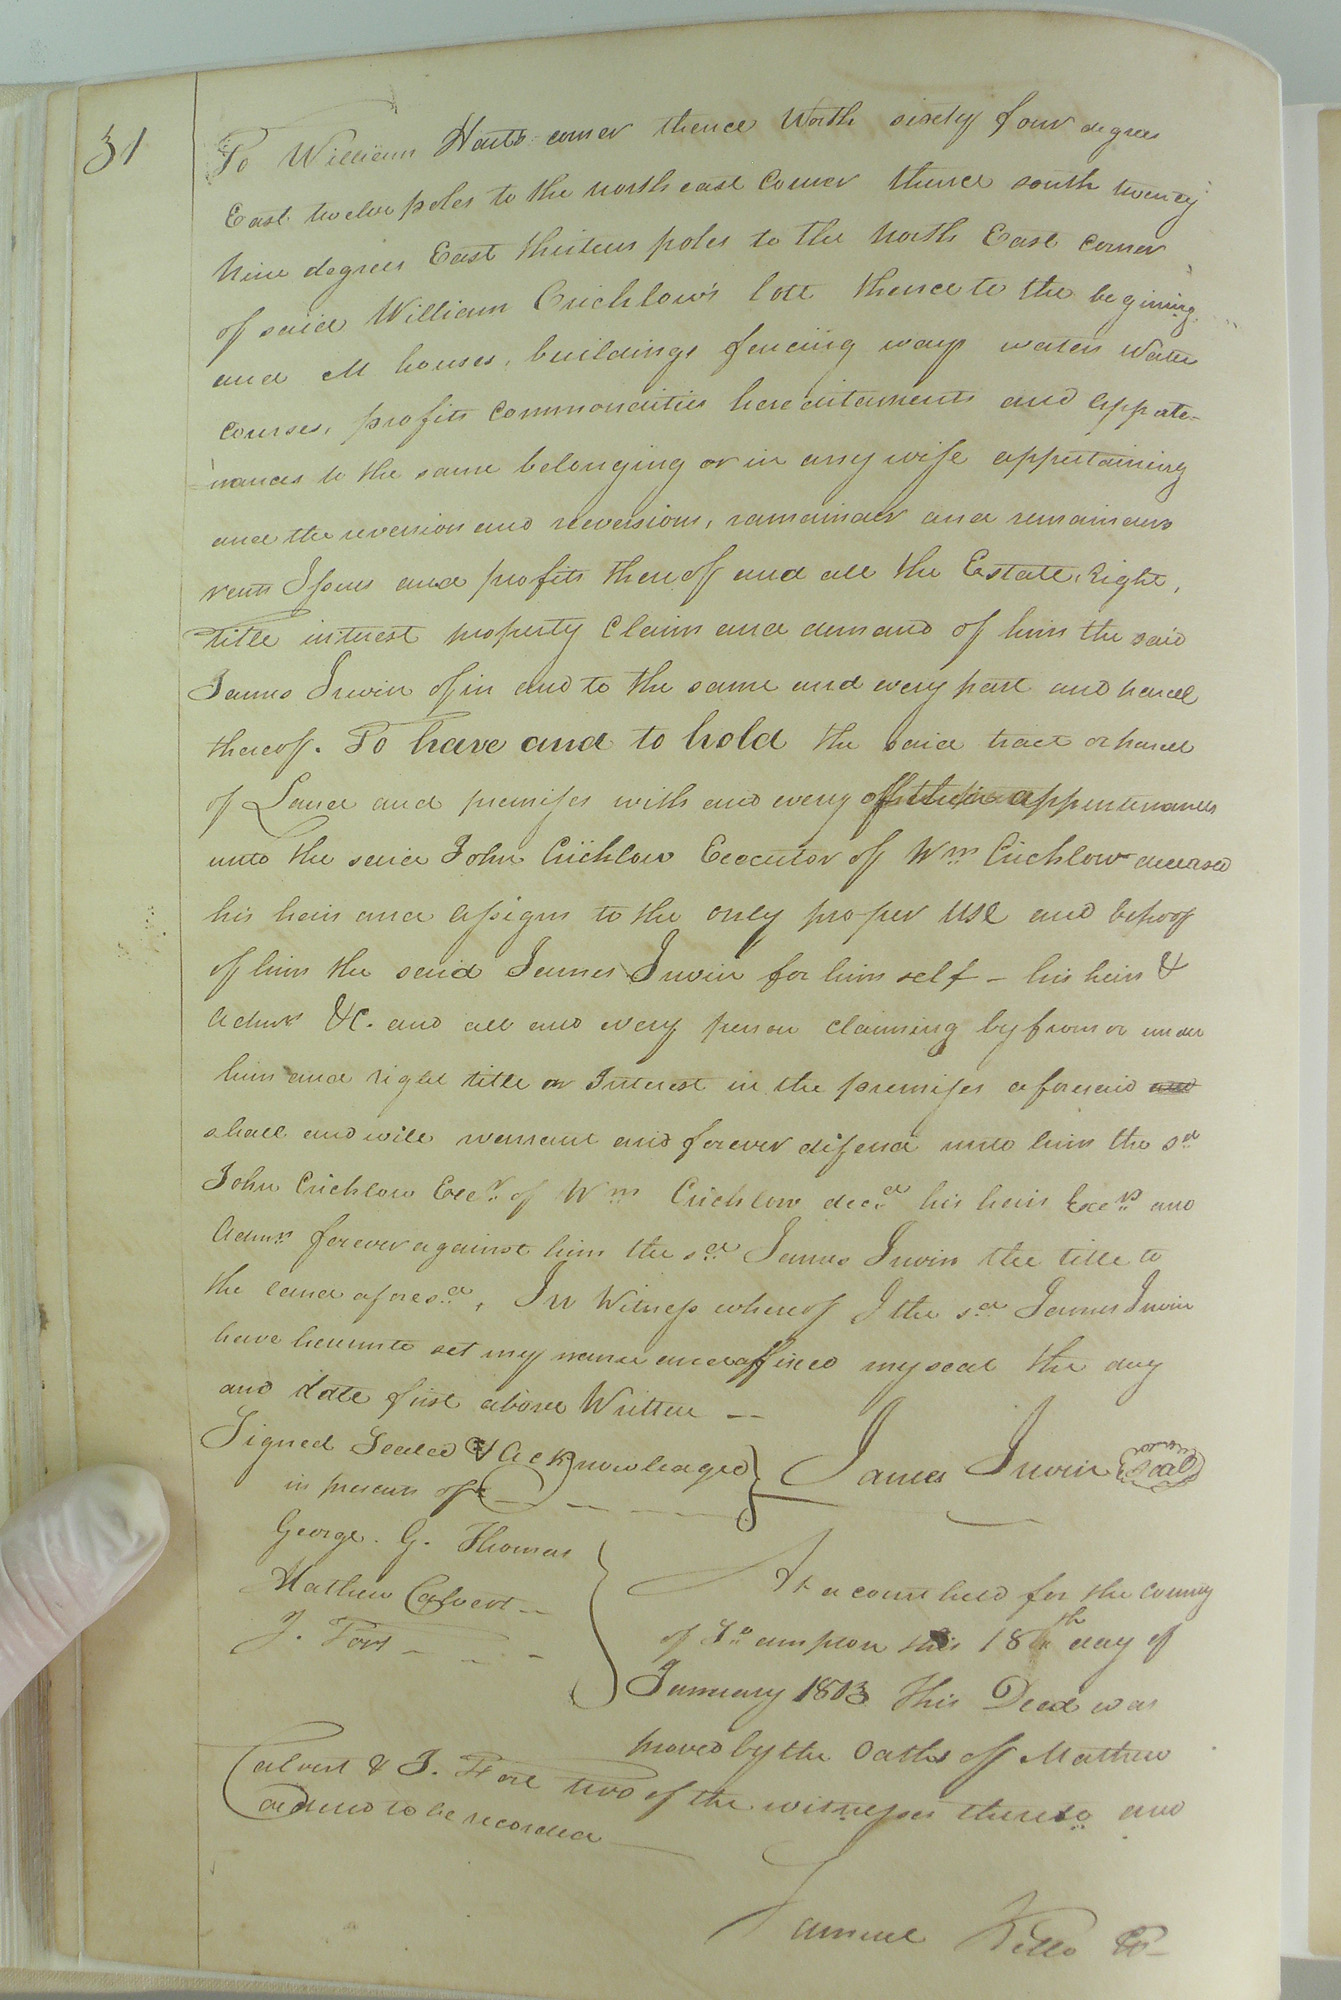 31
To William Harts corner thence North sixty four degrees
East twelve poles to the north east corner thence south twenty
Nine degrees East thirteen poles to the North East corner
of said William Crichlow's lott thence to the begining
and all houses, buildings fencing ways waters Water
courses, profits commondities hereditaments and appate-
nances to the same belonging or in any wise appertaining
and the reversion and reversions, ramainder and remainders
rents Issues and profits thereof and all the Estate, Right,
Title interest property Claim and demand of him the said
James Irwin of in and to the same and every part and parcel
thereof. To have and to hold the said tract or parcel
of Land and premises with and every of their appurtenances
unto the said John Crichlow Executor of Wm Crichlow deceased
his heirs and assigns to the only proper use and behoof
of him the said James Irwin for him self - his heirs &
Admrs &C. and all and every person claiming by from or under
him and right title or Interest in the premises aforesaid and
shall and will warrant and forever difend unto him the sd
John Crichlow Exer of Wm Crichlow decd his heirs Exers and
Admrs forever against him the sd James Irwin the title to
the land aforesd, In Witness whereof I the sd James Irwin
have hereunto set my name and affixed my seal the day
and date first above Written --
Signed Sealed & Acknowledged } James Irwin Seal
in presence of
George. G. Thomas
Mathew Calvert --
J. Fort
At a court held for the County
of So ampton this 18th day of
January 1803 This Deed was
proved by the Oaths of Mathew
Calvert & J. Fort two of the witnesses thereto and
ordered to be recorded
Samuel Kello Ck